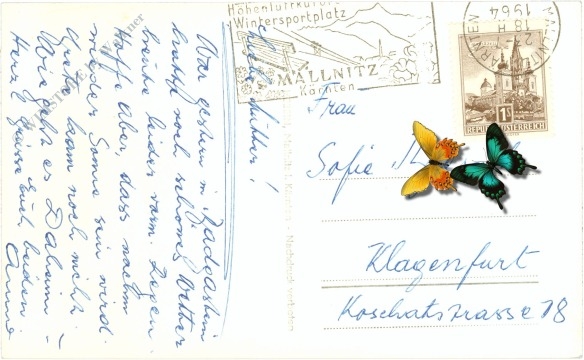 Höhenluftkurort
Wintersportplatz
MALLNITZ
Kärnten
MALLNITZ
1964
KÄRNTEN
1S
REPUBLIK ÖSTERREICH
Liebe Mutter!
War gestern in Badgastein
hatte noch schönes Wetter
heute leider rem. Regen.
Hoffe aber, dass nachm
wieder Sonne sein wird.
Grete kam noch nicht. –
Wie geht es Daheim –
Herzl Grüsse Euch beiden
Anna
Frau
Sofie
Klagenfurt
Koschatstrasse 18